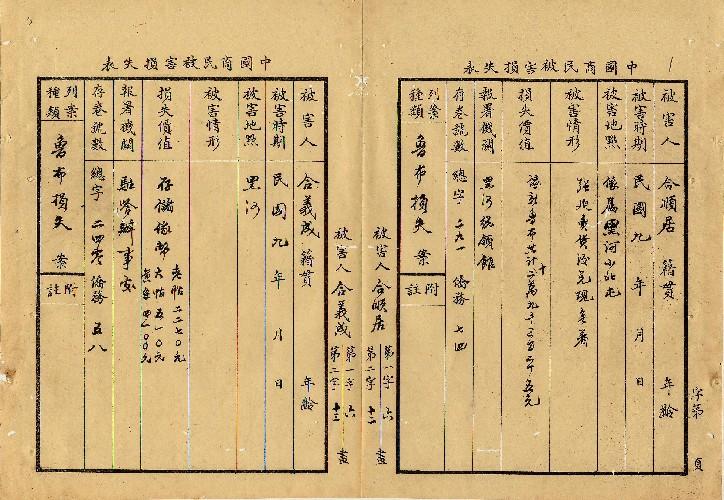 中國商民被害損失表
字第 頁
被害人 合順居 籍貫 年齡
被害時期 民國九年 月 日
被害地點 俄屬黑河小北屯
被害情形
損失價值
報署機關 黑河總領館
存卷號數 總字 二九一 僑務 七四
列案種類 魯布損失 案 附註
被害人 合順居 第一字 六 第二字 十二 畫
被害人 合義成 第一字 六 第二字 十三 畫
中國商民被害損失表
被害人 合義成 籍貫 年齡
被害時期 民國九年 月 日
被害地點 黑河
被害情形
損失價值 存儲俄幣 老帖二二七〇元
報署機關 駐崴辦事家
存卷號數 總字 二四零 僑務 五八
列案種類 魯布損失 案 附註